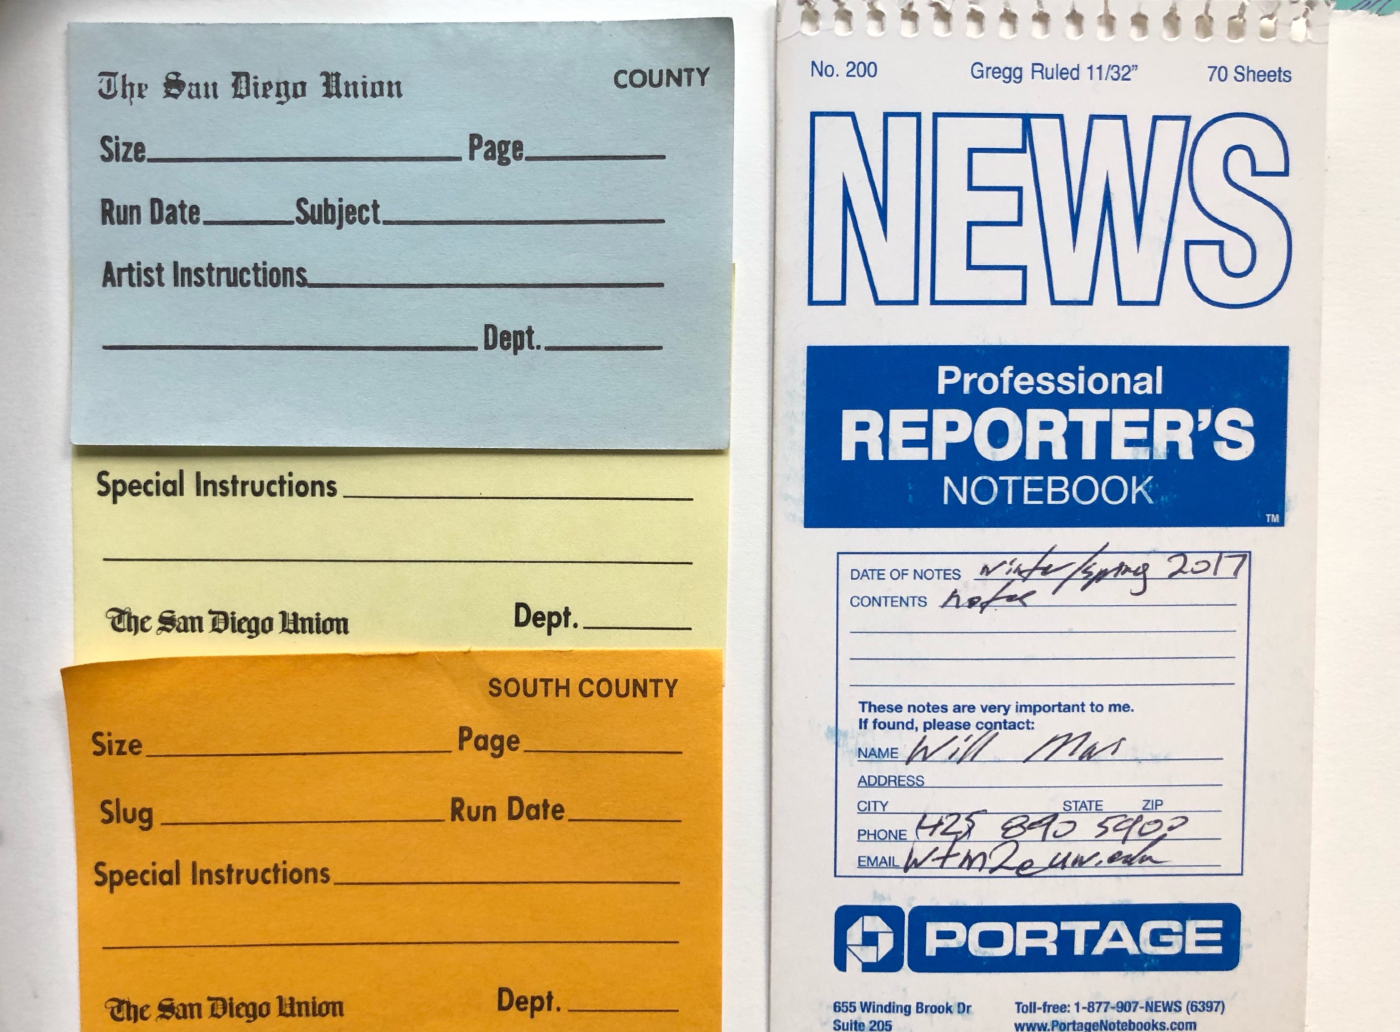 The San Diego Union COUNTY
Size Page
Run Date Subject
Artist Instructions
Dept.
Special Instructions
The San Diego Union Dept.
SOUTH COUNTY
Size Page
Slug Run Date
Special Instructions
The San Diego Union Dept.
No. 200 Gregg Ruled 11/32" 70 Sheets
NEWS
Professional
REPORTER'S
NOTEBOOK
TM
DATE OF NOTES winter/spring 2017
CONTENTS notes
These notes are very important to me.
If found, please contact:
NAME Will
ADDRESS
CITY STATE ZIP
PHONE 425 890 5900
EMAIL wtm2@uw.edu
PORTAGE
655 Winding Brook Dr Toll-free: 1-877-907-NEWS (6397)
Suite 205 www.PortageNotebooks.com